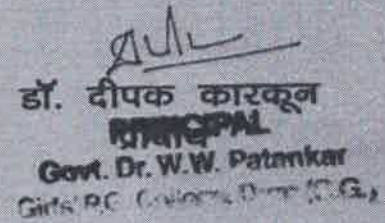 डॉ. दीपक कारकून
PRINCIPAL
Govt. Dr. W.W. Patankar
Girls' P.G. College, Durg (C.G.)